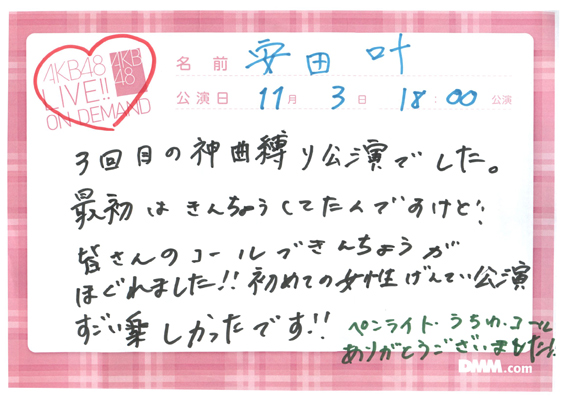 AKB48
LIVE!!
ON DEMAND
AKB
48
名前 安田 叶
公演日 11月 3日 18:00 公演
3回目の神曲縛り公演でした。
最初はきんちょうしてたんですけど、
皆さんのコールできんちょうが
ほぐれました!! 初めての女性げんてい公演
すごい楽しかったです!!
ペンライト・うちわ・コール
ありがとうございました!
DMM.com